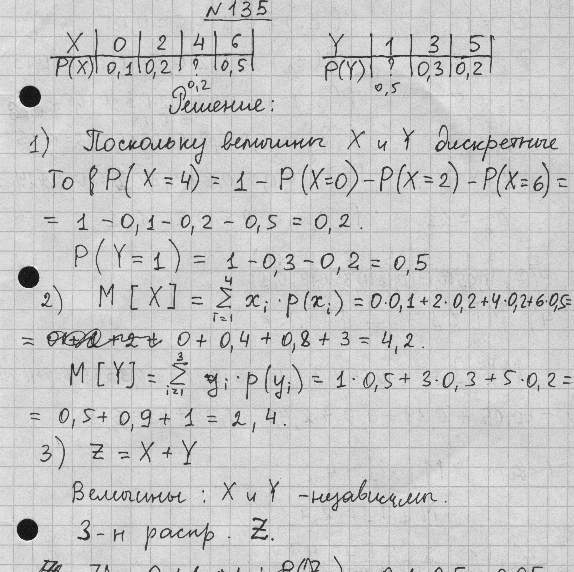 №135
X | 0 | 2 | 4 | 6 |    Y | 1 | 3 | 5 |
P(X) | 0,1 | 0,2 | ? | 0,5    P(Y) | ? | 0,3 | 0,2 |
0,2    0,5
Решение:
1) Поскольку величины X и Y дискретные
То P(X=4) = 1 - P(X=0) - P(X=2) - P(X=6) =
= 1 - 0,1 - 0,2 - 0,5 = 0,2.
P(Y=1) = 1 - 0,3 - 0,2 = 0,5
2) M[X] = ∑ᵢ₌₁⁴ xᵢ·p(xᵢ) = 0·0,1+2·0,2+4·0,2+6·0,5=
= 0 + 0,4 + 0,8 + 3 = 4,2.
M[Y] = ∑ᵢ₌₁³ yᵢ·p(yᵢ) = 1·0,5+ 3·0,3 + 5·0,2 =
= 0,5 + 0,9 + 1 = 2,4.
3) Z = X + Y
Величины: X и Y - независимы.
З-н распр. Z.